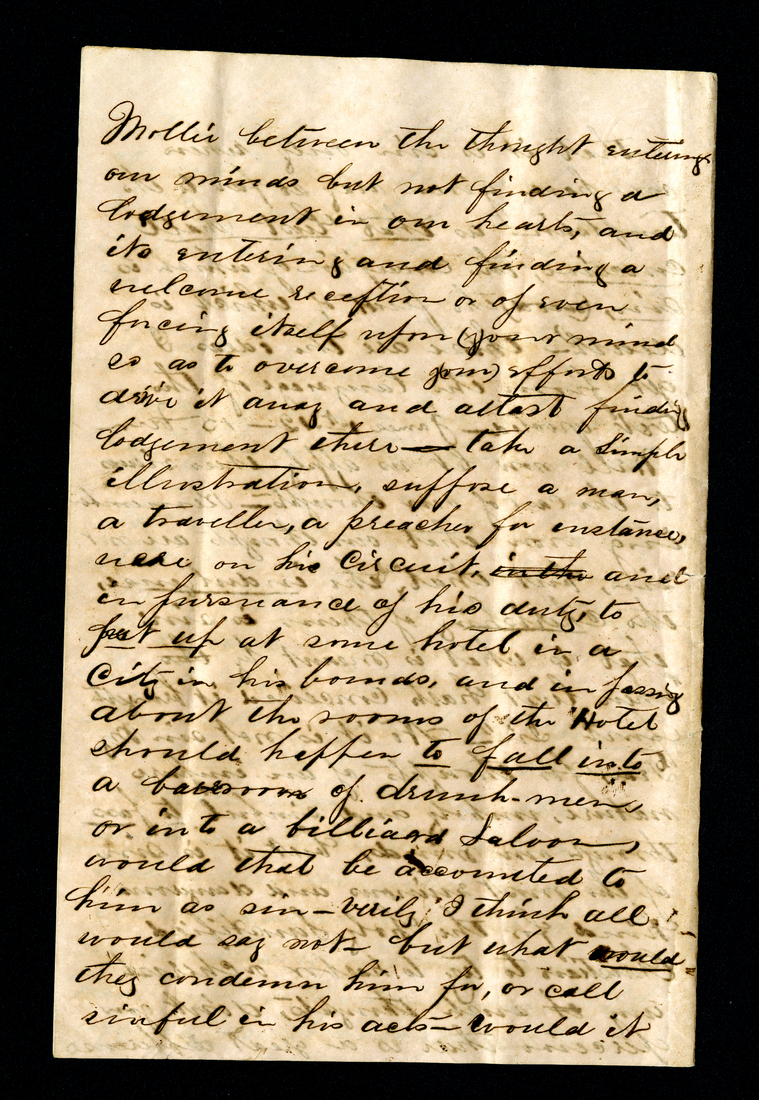 Mollie between the thought entering
our minds but not finding a
lodgement in our hearts, and
its entering and finding a
welcome reception or of even
forcing itself upon (your mind
so as to overcome your) efforts to
drive it away and atlast finding
lodgement there — take a simple
illustration, suppose a man,
a traveller, a preacher for instance,
were on his Circuit, in the and
in pursuance of his duty, to
put up at some hotel in a
City in his bounds, and in passing
about the rooms of the Hotel
should happen to fall into
a barroom of drunk-men,
or into a billiard Saloon,
would that be accounted to
him as sin – verily I think all
would say not – but what would
they condemn him for, or call
sinful in his acts – would it